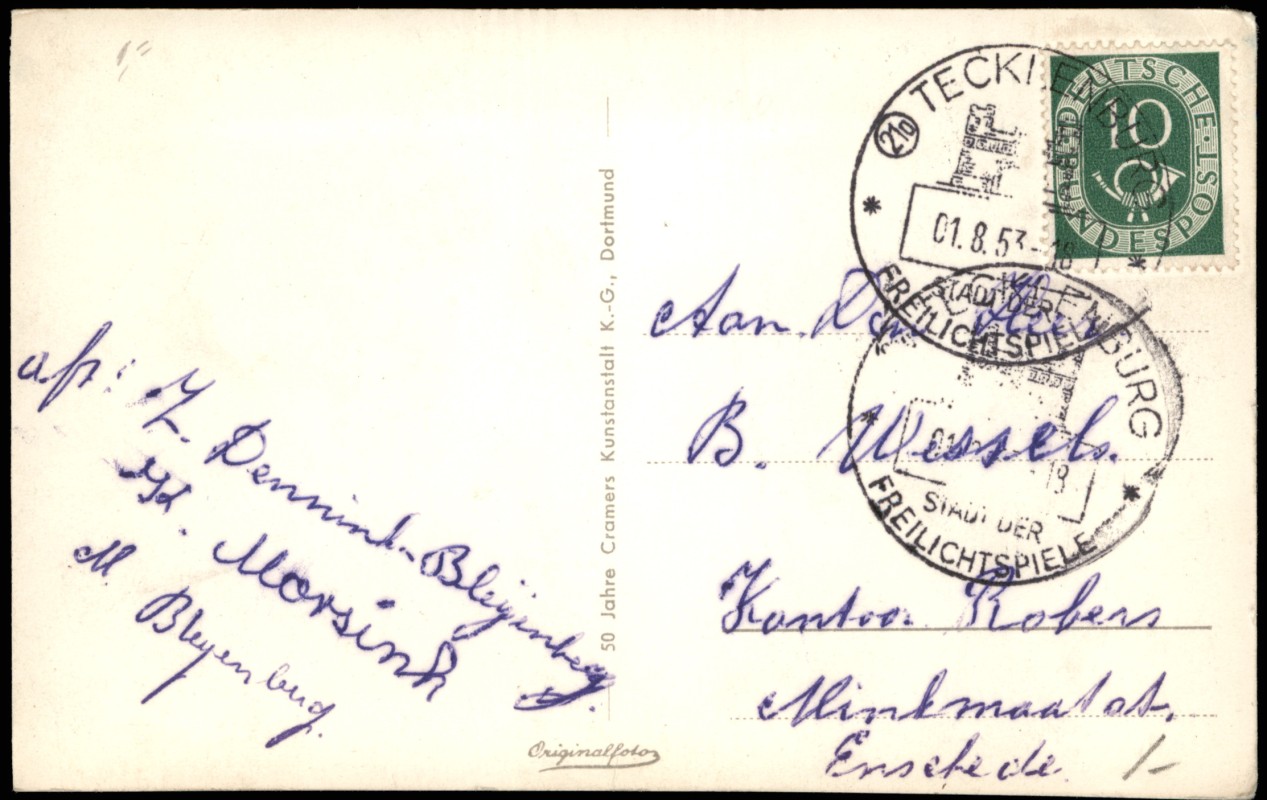 1,-
afz:
Z. Dennink-Bleijenberg.
M. Bleyenburg.
Morsink
50 Jahre Cramers Kunstanstalt K.-G., Dortmund
Originalfoto
DEUTSCHE BUNDESPOST
10
21a TECKLENBURG
01.8.53-18
STADT DER
FREILICHTSPIELE
TECKLENBURG
01. -18
STADT DER
FREILICHTSPIELE
Aan Den Heer
B. Wessels.
Kantoor Robers
Minkmaatst.
Enschede.
1/-